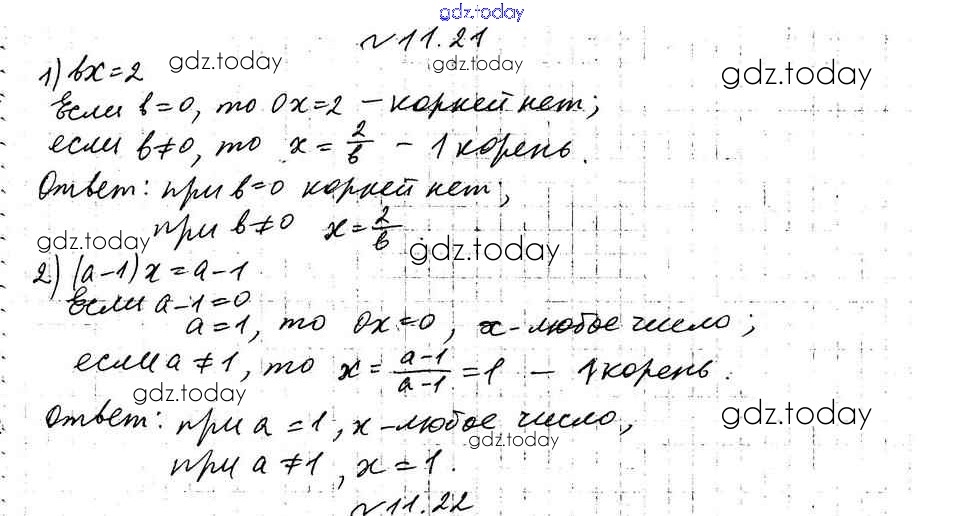 gdz.today
№ 11.21
1) bx=2 gdz.today gdz.today gdz.today
Если b=0, то 0x=2 – корней нет;
если b≠0, то x = 2/b – 1 корень.
Ответ: при b=0 корней нет;
при b≠0 x=2/b
gdz.today gdz.today
2) (a-1)x=a-1
Если a-1=0
a=1, то 0x=0, x-любое число;
если a≠1, то x = (a-1)/(a-1) = 1 – 1 корень.
gdz.today gdz.today
Ответ: при a=1, x-любое число,
gdz.today
при a≠1, x=1.
№ 11.22